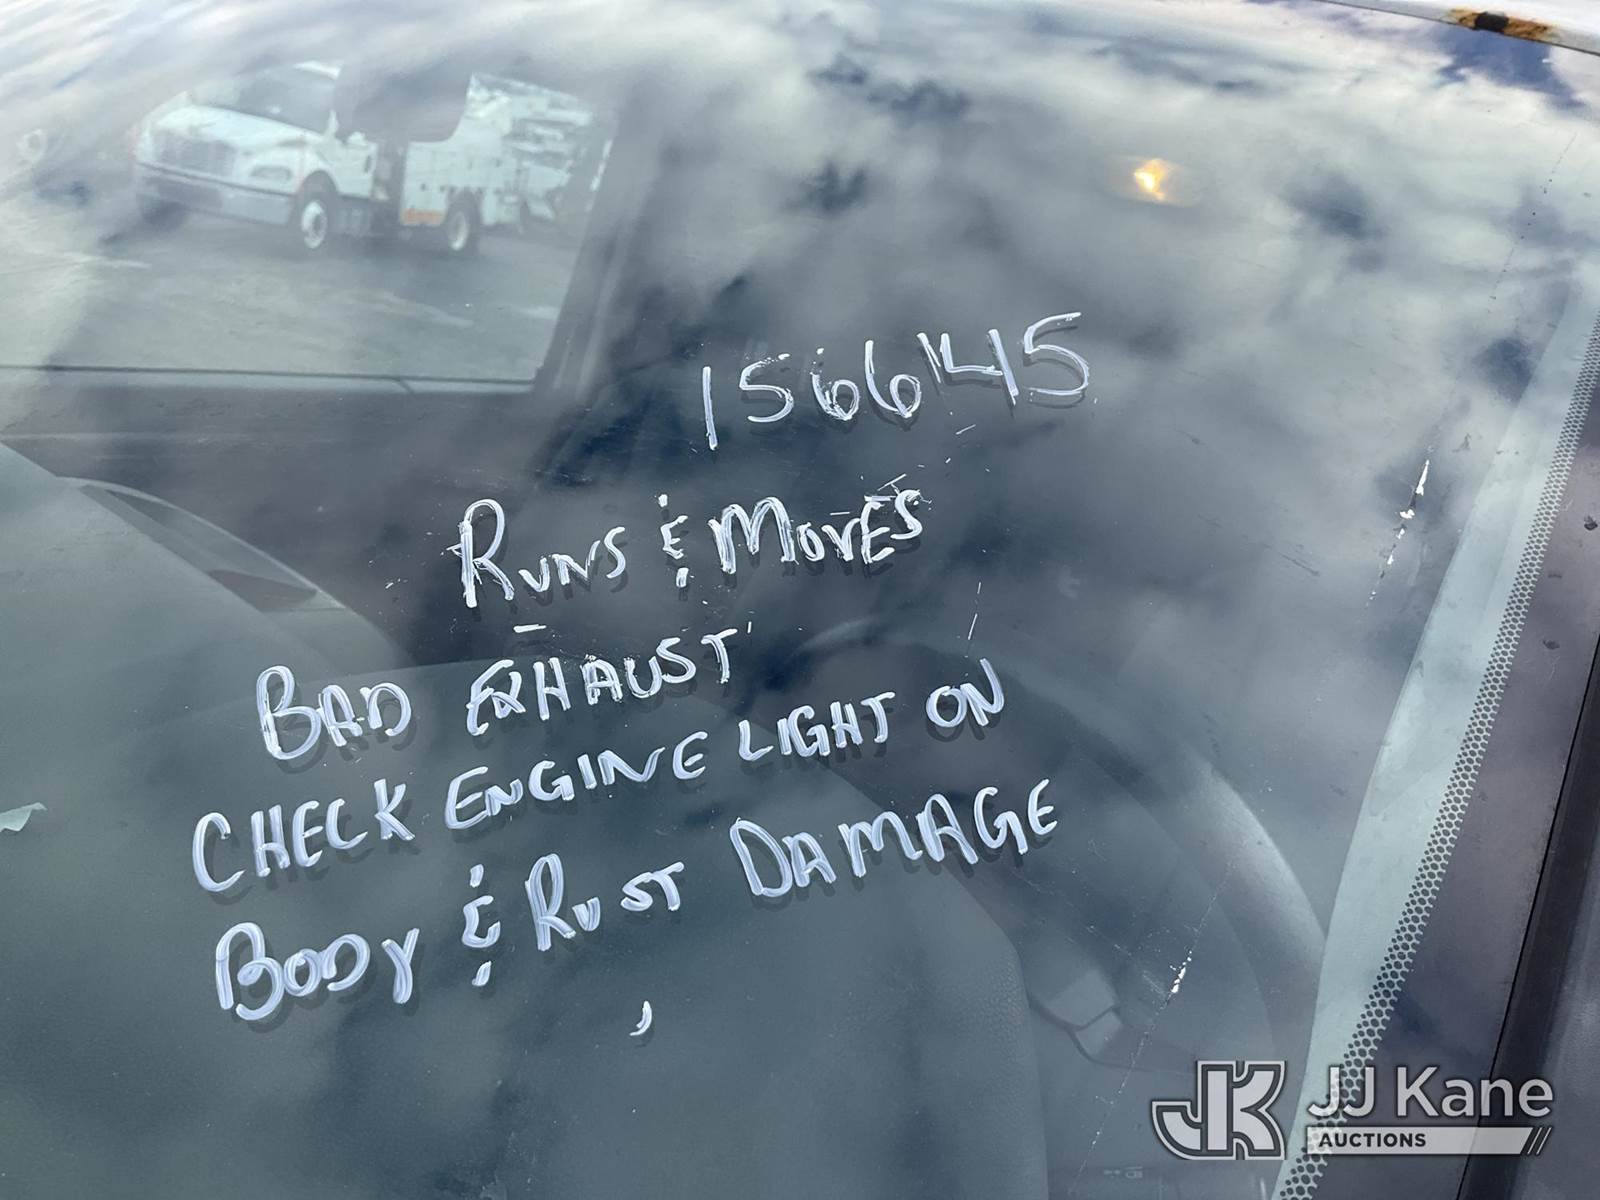 1566145
RUNS & MOVES
BAD EXHAUST
CHECK ENGINE LIGHT ON
BODY & RUST DAMAGE
JK JJ Kane
AUCTIONS